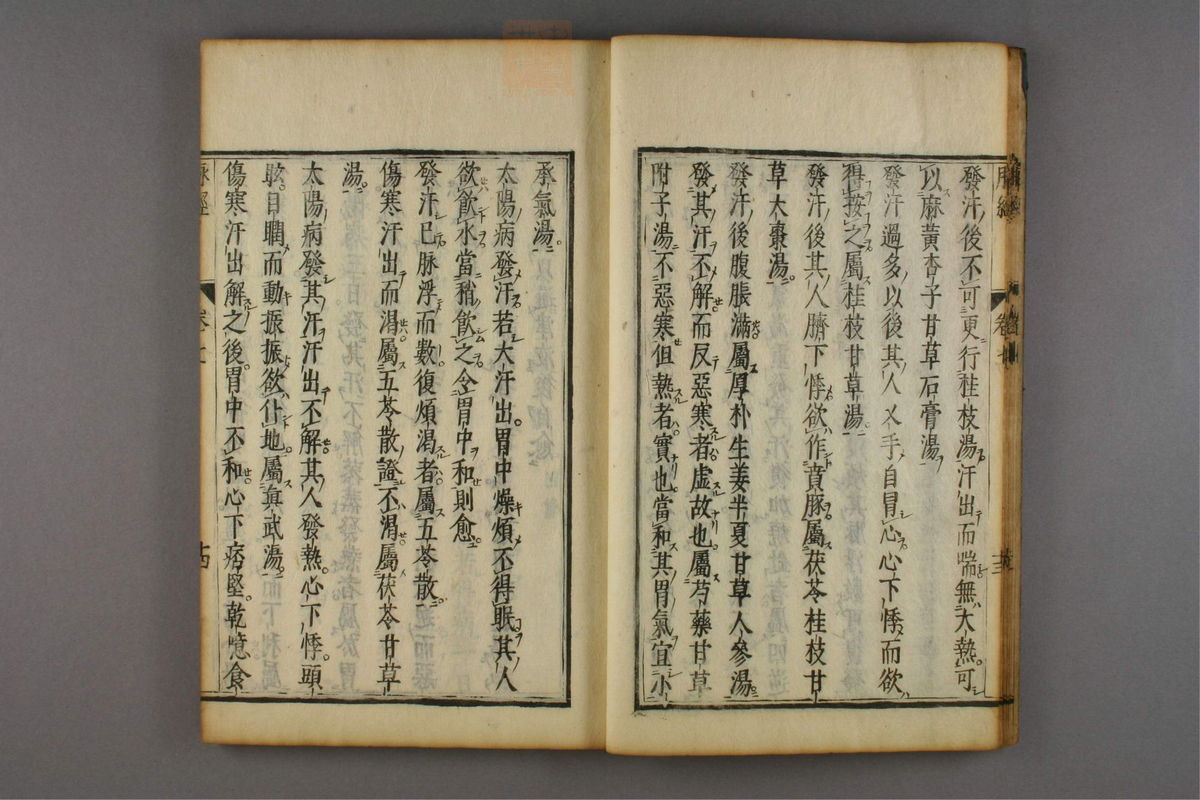 發汗後不可更行桂枝湯汗出而喘無大熱可
以麻黃杏子甘草石膏湯
發汗過多以後其人叉手自冒心心下悸而欲
得按之屬桂枝甘草湯
發汗後其人臍下悸欲作賁豚屬茯苓桂枝甘
草大棗湯
發汗後腹脹滿屬厚朴生姜半夏甘草人參湯
發其汗不解而反惡寒者虛故也屬芍藥甘草
附子湯不惡寒但熱者實也當和其胃氣宜小
承氣湯
太陽病發汗若大汗出胃中燥煩不得眠其人
欲飲水當稍飲之令胃中和則愈
發汗已脉浮而數復煩渴者屬五苓散
傷寒汗出而渴屬五苓散證不渴屬茯苓甘草
湯
太陽病發其汗汗出不解其人發熱心下悸頭
眩目瞤而動振振欲仆地屬真武湯
傷寒汗出解之後胃中不和心下痞堅乾噫食
脉經